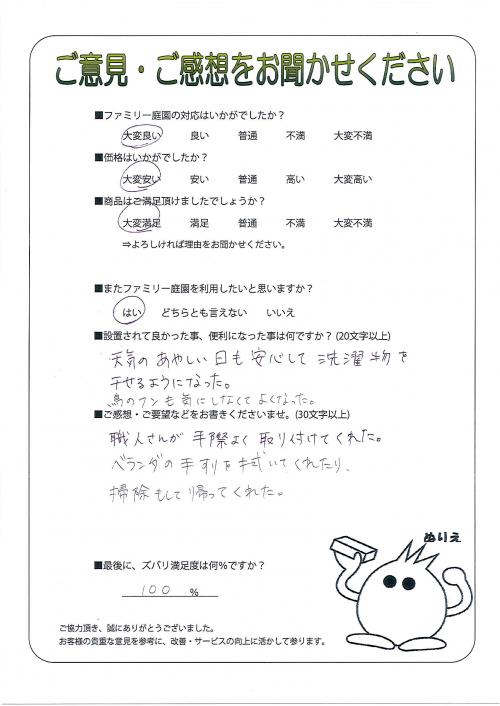 ご意見・ご感想をお聞かせください
■ファミリー庭園の対応はいかがでしたか？
大変良い 良い 普通 不満 大変不満
■価格はいかがでしたか？
大変安い 安い 普通 高い 大変高い
■商品はご満足頂けましたでしょうか？
大変満足 満足 普通 不満 大変不満
⇒よろしければ理由をお聞かせください。
■またファミリー庭園を利用したいと思いますか？
はい どちらとも言えない いいえ
■設置されて良かった事、便利になった事は何ですか？(20文字以上)
天気のあやしい日も安心して洗濯物を
干せるようになった。
鳥のフンも気にしなくてよくなった。
■ご感想・ご要望などをお書きくださいませ。(30文字以上)
職人さんが手際よく取り付けてくれた。
ベランダの手すりを拭いてくれたり、
掃除もして帰ってくれた。
ぬりえ
■最後に、ズバリ満足度は何％ですか？
100 ％
ご協力頂き、誠にありがとうございました。
お客様の貴重な意見を参考に、改善・サービスの向上に活かして参ります。